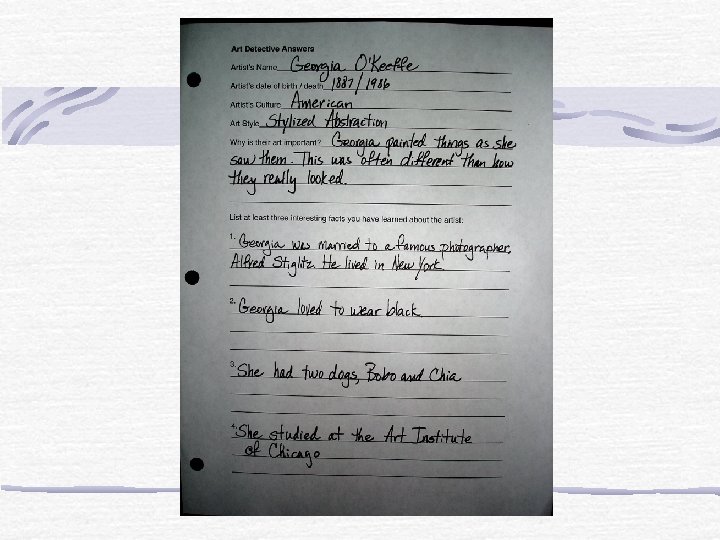 Art Detective Answers
Artist's Name Georgia O'Keeffe
Artist's date of birth / death 1887/1986
Artist's Culture American
Art Style Stylized Abstraction
Why is their art important? Georgia painted things as she
saw them. This was often different than how
they really looked.
List at least three interesting facts you have learned about the artist:
1. Georgia was married to a famous photographer,
Alfred Stiglitz. He lived in New York.
2. Georgia loved to wear black.
3. She had two dogs, Bobo and Chia
4. She studied at the Art Institute
of Chicago